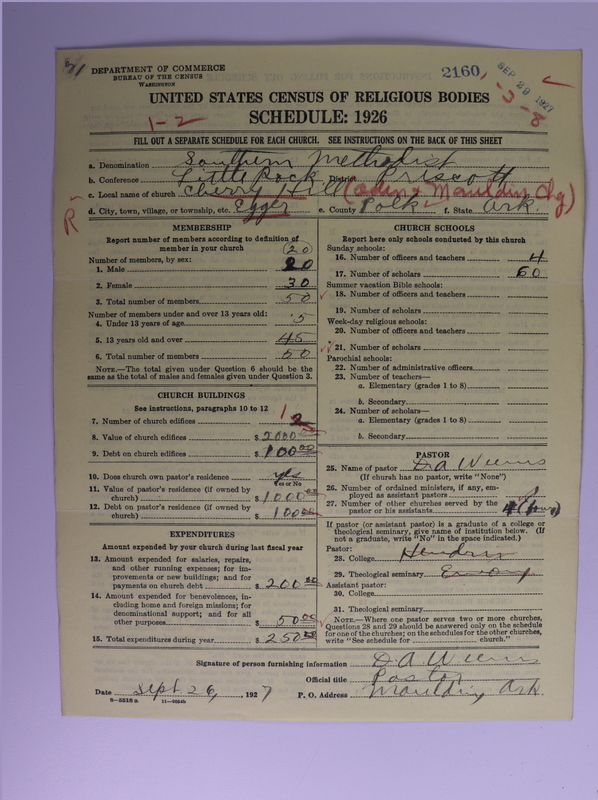 DEPARTMENT OF COMMERCE
BUREAU OF THE CENSUS
WASHINGTON
2160
SEP 29 1927
UNITED STATES CENSUS OF RELIGIOUS BODIES
SCHEDULE: 1926
1-2
-3-8
FILL OUT A SEPARATE SCHEDULE FOR EACH CHURCH. SEE INSTRUCTIONS ON THE BACK OF THIS SHEET
a. Denomination Southern Methodist
b. Conference Little Rock District Prescott
c. Local name of church Cherry Hill (Mauldin Chg)
d. City, town, village, or township, etc. Egger e. County Polk f. State Ark.
R
MEMBERSHIP
Report number of members according to definition of member in your church
Number of members, by sex: (20)
1. Male 20
2. Female 30
3. Total number of members 50
Number of members under and over 13 years old:
4. Under 13 years of age 5
5. 13 years old and over 45
6. Total number of members 50
NOTE.—The total given under Question 6 should be the same as the total of males and females given under Question 3.
CHURCH BUILDINGS
See instructions, paragraphs 10 to 12
7. Number of church edifices 1
8. Value of church edifices $ 2000 00
9. Debt on church edifices $ 100 00
10. Does church own pastor's residence? yes
Yes or No
11. Value of pastor's residence (if owned by church) $ 1000 00
12. Debt on pastor's residence (if owned by church) $ 100 00
EXPENDITURES
Amount expended by your church during last fiscal year
13. Amount expended for salaries, repairs, and other running expenses; for improvements or new buildings; and for payments on church debt $ 200 00
14. Amount expended for benevolences, including home and foreign missions; for denominational support; and for all other purposes $ 50 00
15. Total expenditures during year $ 250 00
CHURCH SCHOOLS
Report here only schools conducted by this church
Sunday schools:
16. Number of officers and teachers 4
17. Number of scholars 60
Summer vacation Bible schools:
18. Number of officers and teachers
19. Number of scholars
Week-day religious schools:
20. Number of officers and teachers
21. Number of scholars
Parochial schools:
22. Number of administrative officers
23. Number of teachers—
a. Elementary (grades 1 to 8)
b. Secondary
24. Number of scholars—
a. Elementary (grades 1 to 8)
b. Secondary
PASTOR
25. Name of pastor D A Weems
(If church has no pastor, write "None")
26. Number of ordained ministers, if any, employed as assistant pastors
27. Number of other churches served by the pastor or his assistants 4 (four)
If pastor (or assistant pastor) is a graduate of a college or theological seminary, give name of institution below. (If not a graduate, write "No" in the space indicated.)
Pastor:
28. College Hendrix
29. Theological seminary Emory
Assistant pastor:
30. College
31. Theological seminary
NOTE.—Where one pastor serves two or more churches, Questions 28 and 29 should be answered only on the schedule for one of the churches; on the schedules for the other churches, write "See schedule for church."
Signature of person furnishing information D A Weems
Official title Pastor
Date Sept. 26, 1927 P. O. Address Mauldin, Ark.
8—5318 a